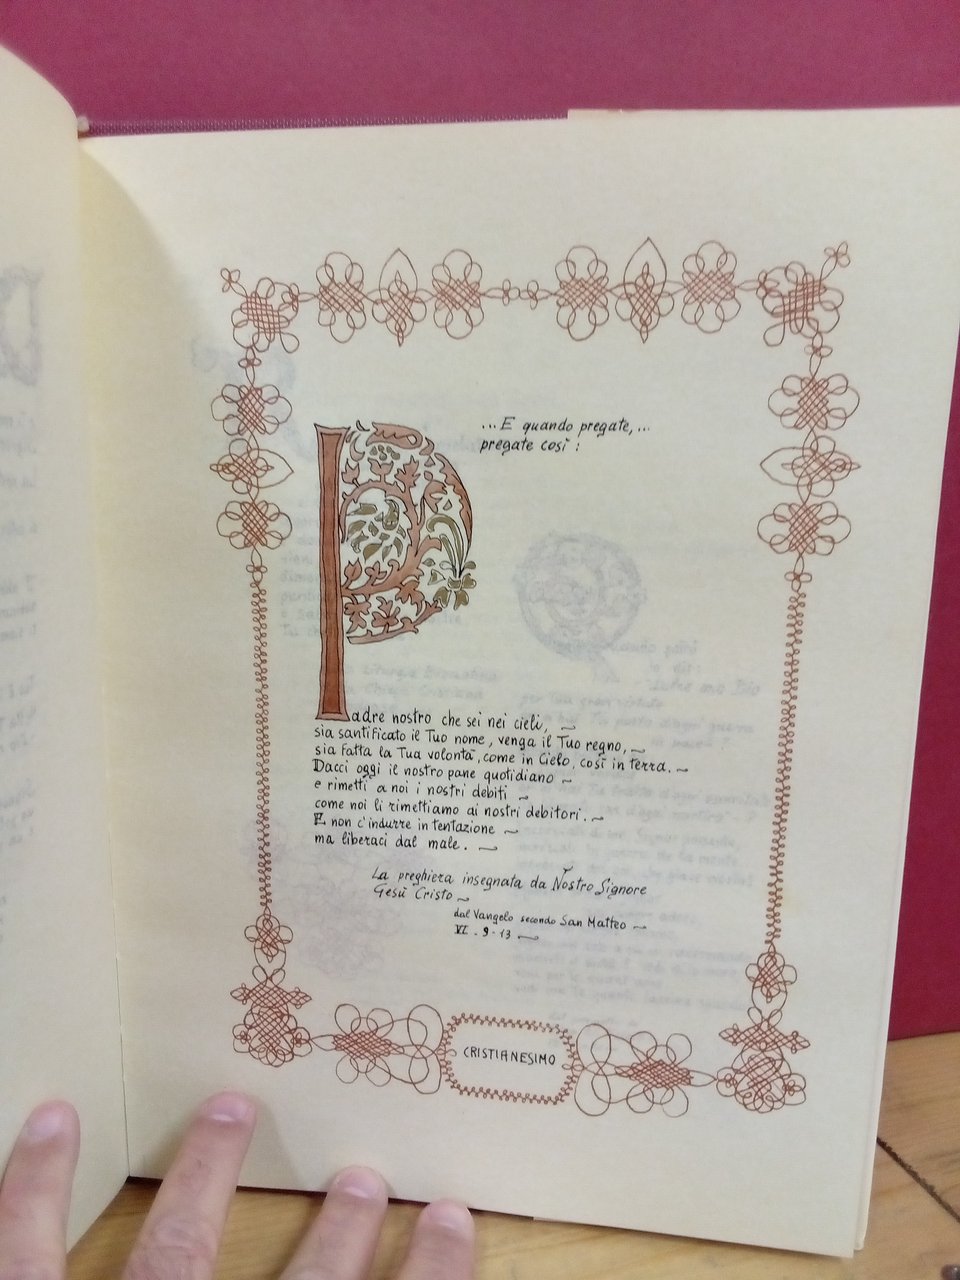 ...E quando pregate,...
pregate così:
Padre nostro che sei nei cieli,
sia santificato il Tuo nome, venga il Tuo regno,
sia fatta la Tua volontà, come in Cielo, così in terra.
Dacci oggi il nostro pane quotidiano
e rimetti a noi i nostri debiti
come noi li rimettiamo ai nostri debitori.
E non c'indurre in tentazione
ma liberaci dal male.
La preghiera insegnata da Nostro Signore
Gesù Cristo
dal Vangelo secondo San Matteo
VI. 9-13
CRISTIANESIMO